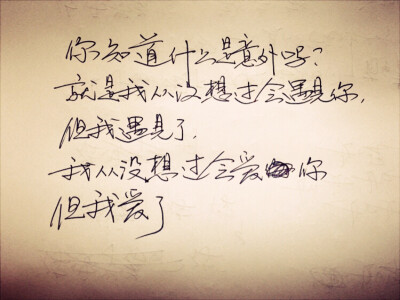 你知道什么是意外吗?
就是我从没想过会遇見你,
但我遇見了.
我从没想过会爱你
但我爱了